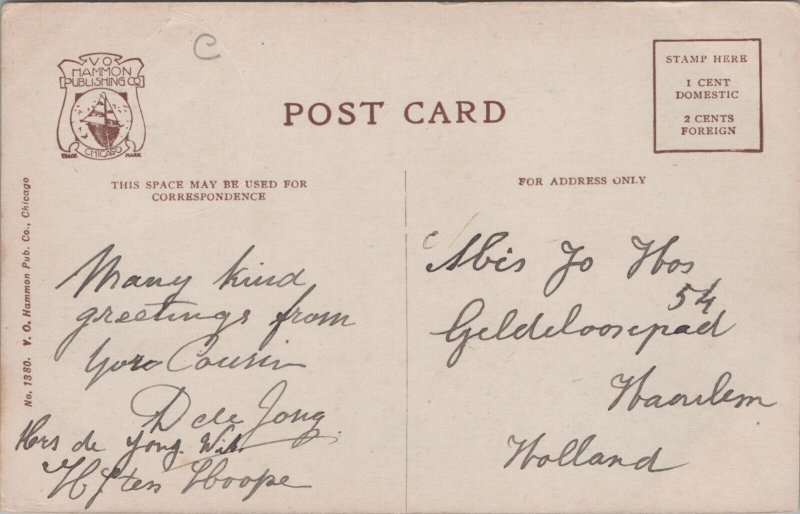 V O
HAMMON
PUBLISHING CO
TRADE CHICAGO MARK
C
POST CARD
STAMP HERE
1 CENT
DOMESTIC
2 CENTS
FOREIGN
THIS SPACE MAY BE USED FOR
CORRESPONDENCE
FOR ADDRESS ONLY
No. 1380. V. O. Hammon Pub. Co., Chicago
Many kind
greetings from
Cousin
D de Jong
de Jong
ten Hoope
Mis Jo Hos
54
Geldeloosepad
Haarlem
Holland